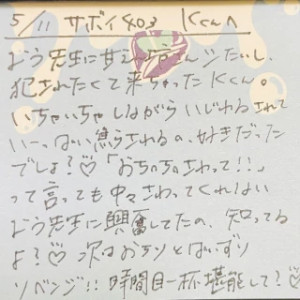 5/11 サボイ403 Kくんへ
よう先生に甘えん坊さんシたいし、
犯されたくて来ちゃったKくん。
いちゃいちゃしながらいじわるされて
いーっぱい焦らされるの、好きだった
でしょ?♡「おちのちのさわって!!」
って言っても中々さわってくれない
よう先生に興奮してたの、知ってる
よ?♡次はおうりとぱいずり
リベンジ!!時間目一杯堪能して?♡